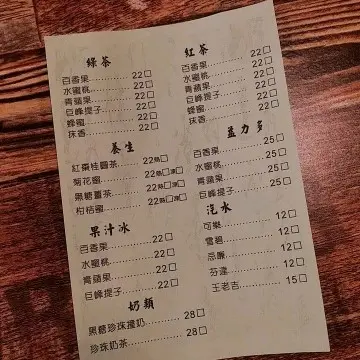 綠茶
百香果............22□
水蜜桃............22□
青蘋果............22□
巨峰提子.........22□
蜂蜜...............22□
抹香...............22□
養生
紅棗桂圓茶......22熱□
菊花蜜............22熱□凍□
黑糖薑茶.........22熱□凍□
柑桔蜜............22熱□凍□
果汁冰
百香果............22□
水蜜桃............22□
青蘋果............22□
巨峰提子.........22□
奶類
黑糖珍珠撞奶......28□
珍珠奶茶............28□
紅茶
百香果............22□
水蜜桃............22□
青蘋果............22□
巨峰提子.........22□
蜂蜜...............22□
抹香...............22□
益力多
百香果............25□
水蜜桃............25□
青蘋果............25□
巨峰提子.........25□
汽水
可樂...............12□
雪碧...............12□
忌廉...............12□
芬達...............12□
王老吉............15□